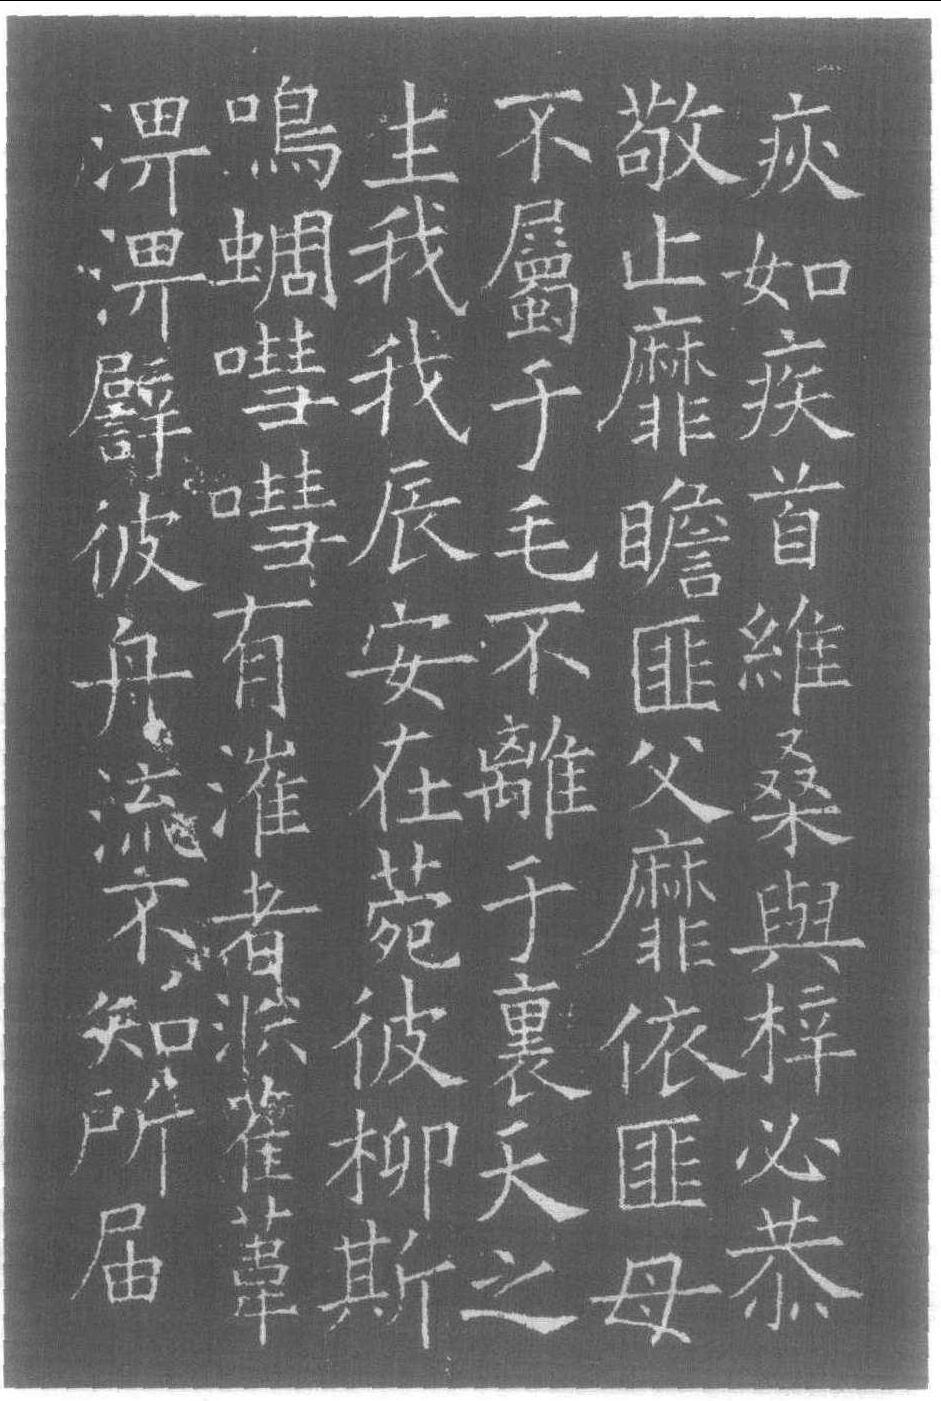 疢如疾首維桑與梓必恭
敬止靡瞻匪父靡依匪母
不屬于毛不離于裏天之
生我我辰安在菀彼柳斯
鳴蜩嘒嘒有漼者淵雚葦
淠淠譬彼舟流不知所届